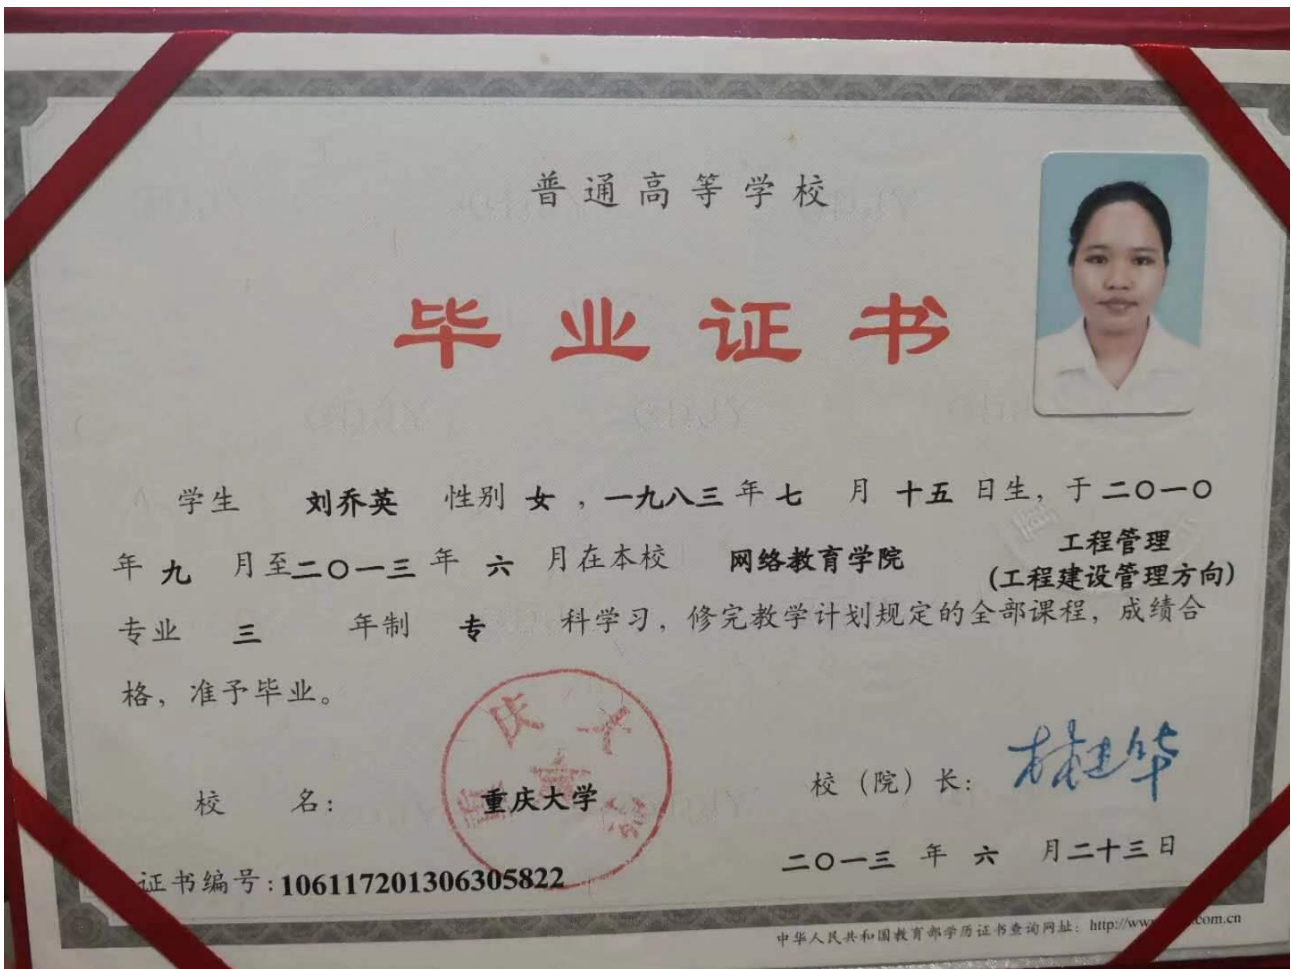 普通高等学校
毕业证书
学生 刘乔英 性别 女，一九八三年七 月 十五 日生，于二〇一〇
年 九 月至二〇一三 年 六 月在本校 网络教育学院 工程管理
(工程建设管理方向)
专业 三 年制 专 科学习，修完教学计划规定的全部课程，成绩合
格，准予毕业。
重庆大学
校 名： 重庆大学
校（院）长：
二〇一三 年 六 月二十三日
证书编号:106117201306305822
中华人民共和国教育部学历证书查询网址：http://www com.cn